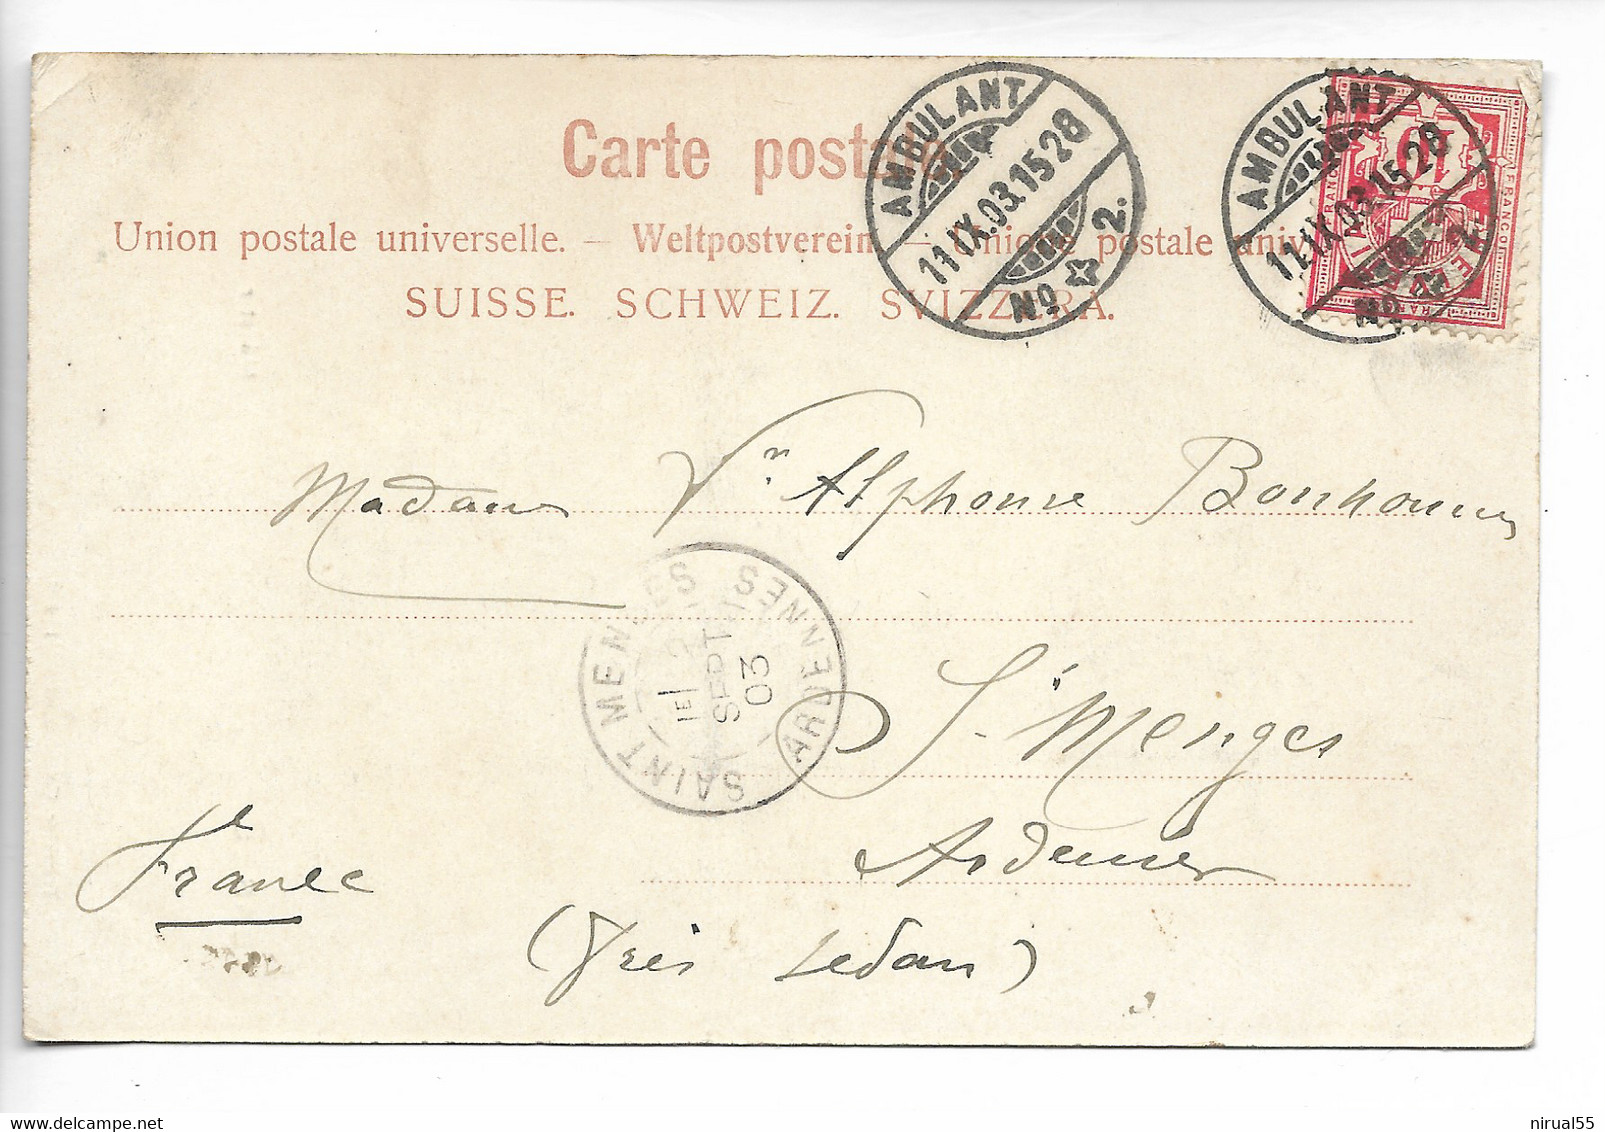 Carte postale.
Union postale universelle. — Weltpostverein — Unione postale univ
SUISSE. SCHWEIZ. SVIZZERA.
AMBULANT
11.IX.03.1528
No 2.
AMBULANT
11.IX.03.1528
No 2.
FRANCO
10
Madame Vve Alphonse Bonhomme
SAINT MENGES ARDENNES
SEPT
03
St Menges
Ardennes
France
(Près Sedan)
nirual55